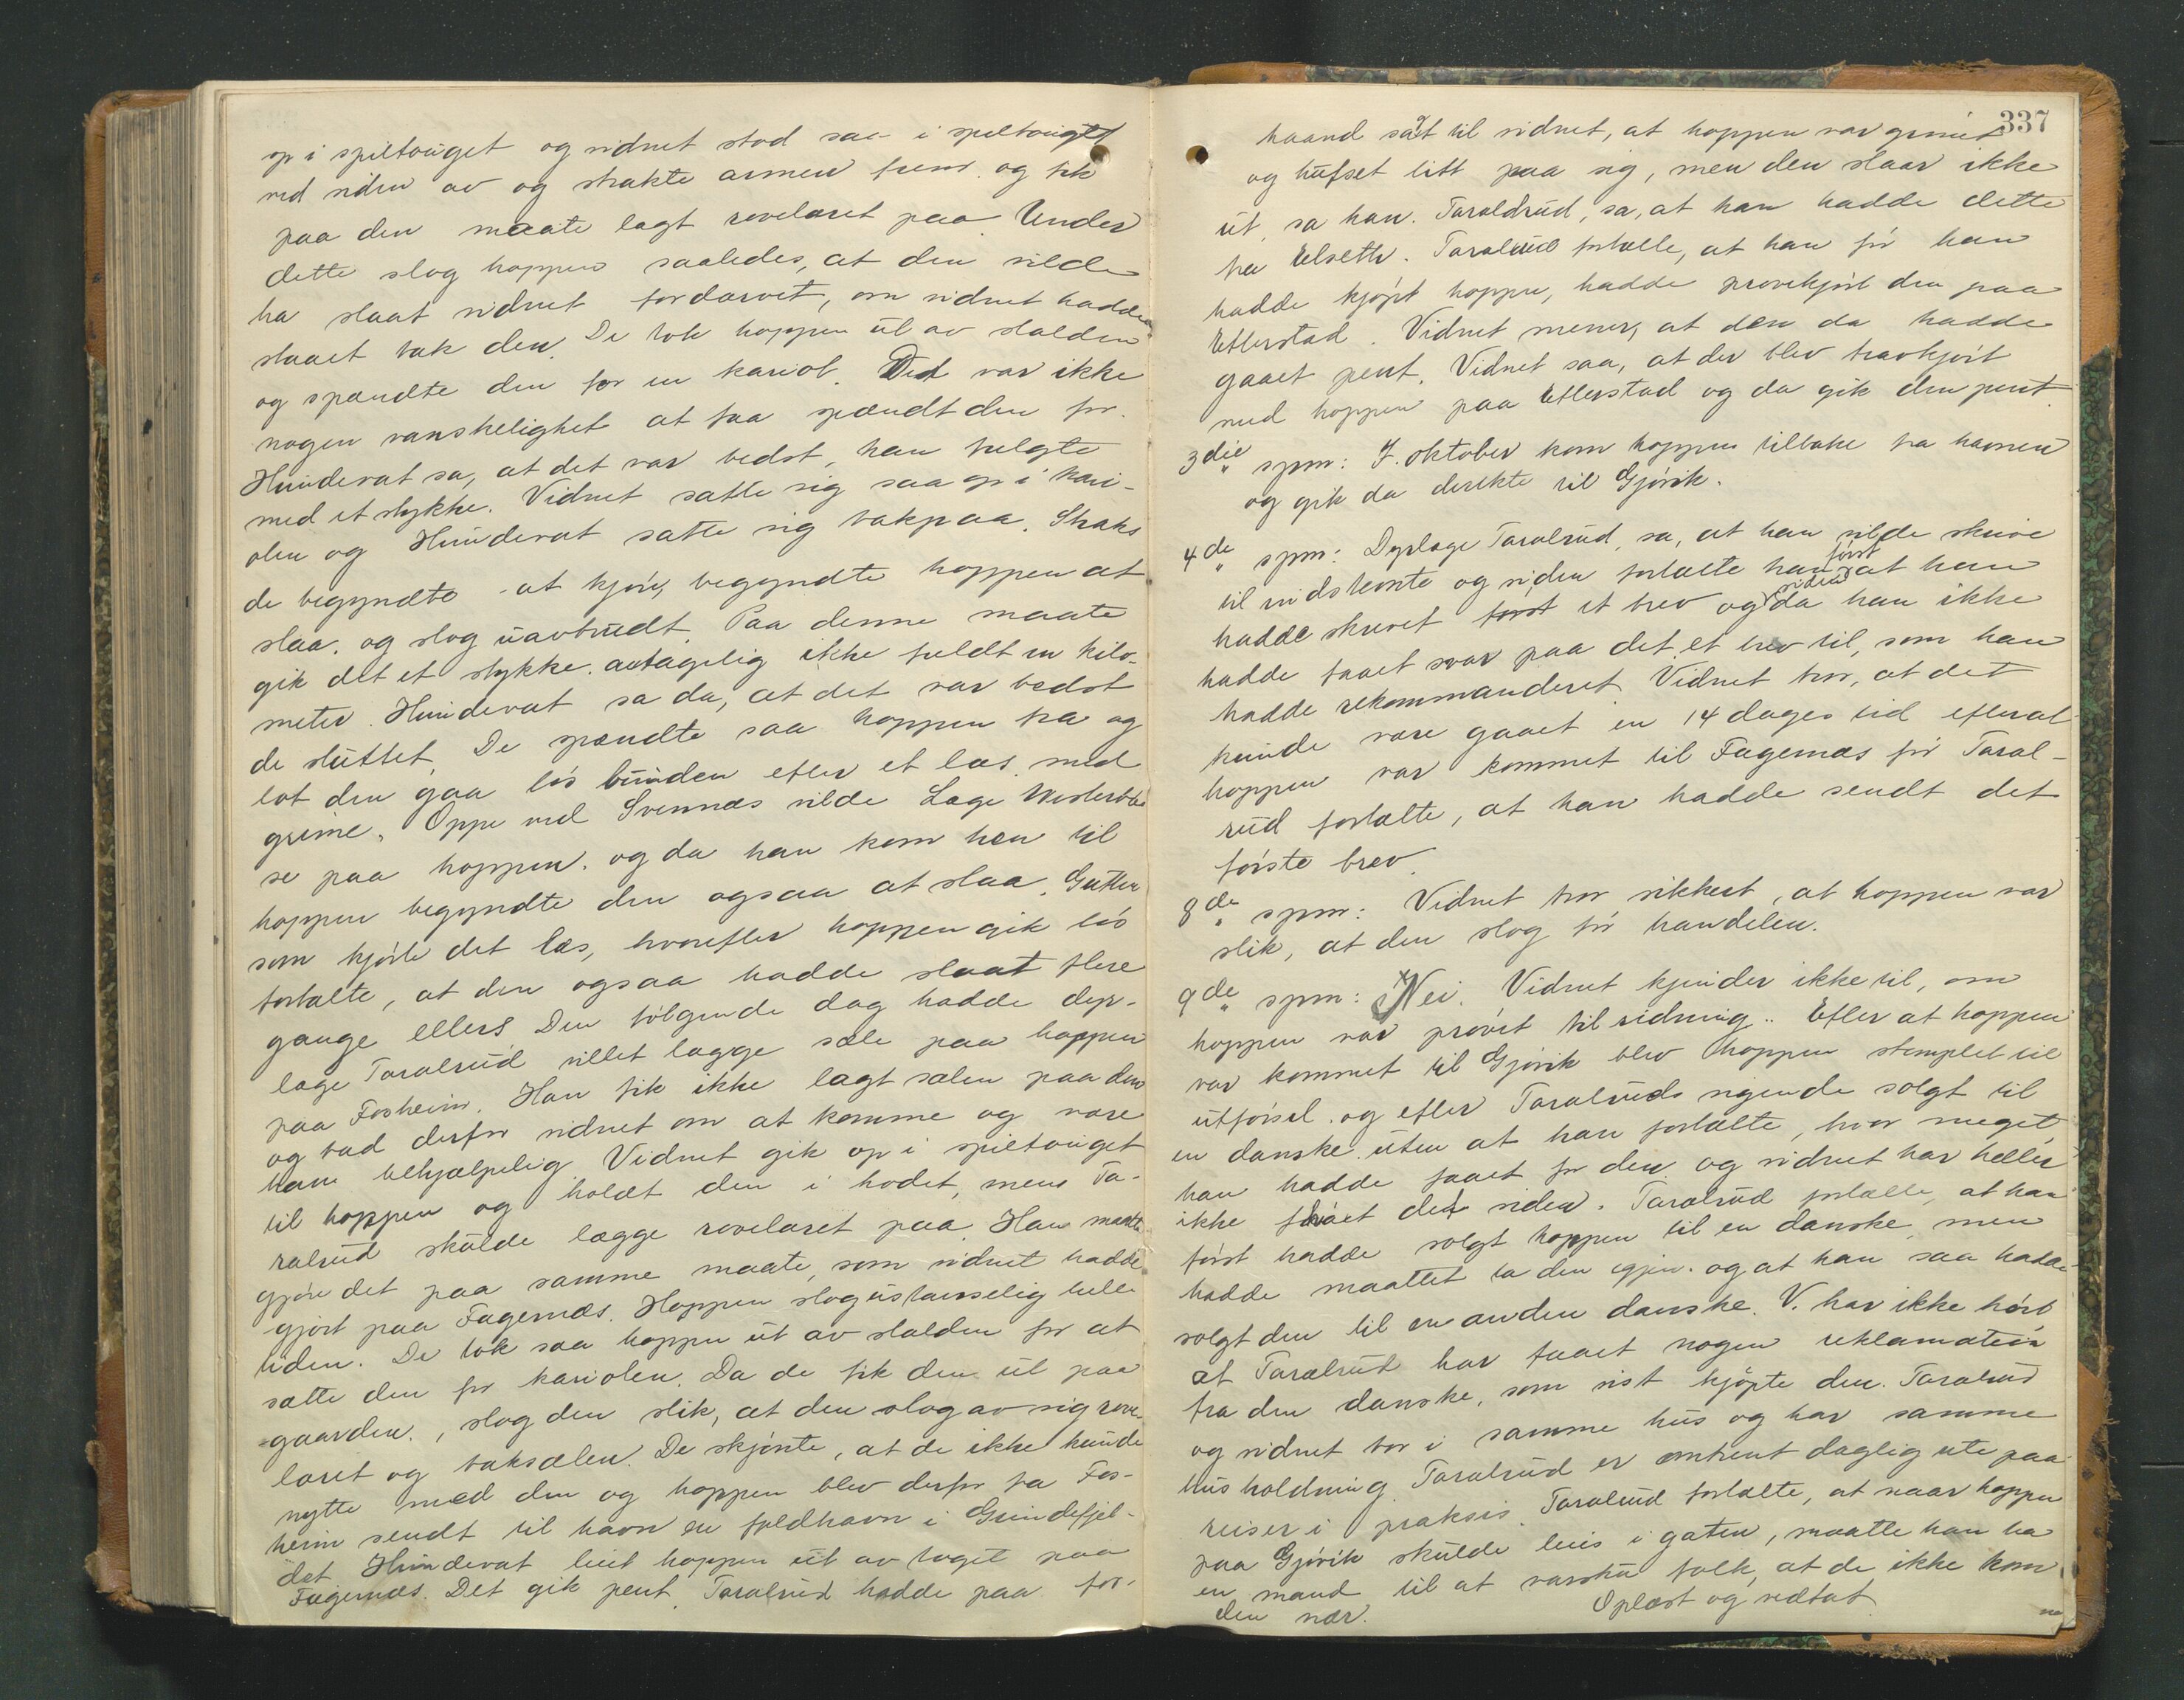 op i spiltouget og vidnet stod saa i spiltouget
ved siden av og strakte armen frem og fik
paa den maate lagt rovelæret paa. Under
dette slog hoppen saaledes, at den vilde
ha slaat vidnet fordærvet, om vidnet hadde
staaet bak den. De tok hoppen ut av stalden
og spændte den for en kariol. Det var ikke
nogen vanskelighet at faa spændt den for.
Hunderat sa, at det var bedst, han fulgte
med et stykke. Vidnet satte sig saa op i kari-
olen og Hunderat satte sig bakpaa. Straks
de begyndte at kjøre, begyndte hoppen at
slaa. og slog uavbrudt. Paa denne maate
gik det et stykke. antagelig ikke fuldt en kilo-
meter. Hunderat sa da, at det var bedst
de sluttet. De spændte saa hoppen fra og
lot den gaa løs bunden efter et læs med
grime. Oppe ved Svennæs vilde Lage
se paa hoppen. og da han kom hen til
hoppen begyndte den ogsaa at slaa. Gutten
som kjørte det læs, hvorefter hoppen gik løs
fortalte, at den ogsaa hadde slaat flere
gange ellers. Den følgende dag hadde dyr-
læge Taralrud villet lægge sele paa hoppen
paa Fosheim. Han fik ikke lagt sælen paa den
og bad derfor vidnet om at komme og være
ham behjælpelig. Vidnet gik op i spiltouget
til hoppen og holdt den i hodet, mens Ta-
ralrud skulde lægge rovelæret paa. Han maatte
gjøre det paa samme maate, som vidnet hadde
gjort paa Fagernæs. Hoppen slog ustanselig hele
tiden. De tok saa hoppen ut av stalden for at
sætte den for kariolen. Da de fik den ut paa
gaarden, slog den slik, at den slog av sig rove-
læret og baksælen. De skjønte, at de ikke kunde
nytte med den og hoppen blev derfor fra Fos-
heim sendt til havn en fjeldhavn i Grindefjel-
det. Hunderat leiet hoppen ut av toget paa
Fagernæs. Det gik pent. Taralrud hadde paa for-
337
haand sagt til vidnet, at hoppen var grinet
og hufset litt paa sig, men den slaar ikke
ut, sa han. Taraldrud, sa, at han hadde dette
fra Elseth. Taralrud fortalte, at han før han
hadde kjøpt hoppen, hadde prøvekjørt den paa
Etterstad. Vidnet mener, at den da hadde
gaaet pent. Vidnet saa, at der blev travkjørt
med hoppen paa Etterstad og da gik den pent.
3die " spm: I. oktober kom hoppen tilbake fra havnen
og gik da direkte til Gjøvik.
4de " spm: Dyrlæge Taralrud, sa, at han vilde skrive
til midskonte og siden fortalte han først at han
hadde skrevet først et brev og siden da han ikke
hadde faaet svar paa det, et brev til, som han
hadde rekommanderet. Vidnet tror, at det
kunde være gaaet en 14 dages tid efterat
hoppen var kommet til Fagernæs før Taral-
rud fortalte, at han hadde sendt det
første brev.
8de " spm: Vidnet tror sikkert, at hoppen var
slik, at den slog før handelen.
9de " spm: Nei. Vidnet kjender ikke til, om
hoppen var prøvet til ridning. Efter at hoppen
var kommet til Gjøvik blev hoppen stemplet til
utførsel. og efter Taralruds sigende solgt til
en danske. uten at han fortalte, hvor meget
han hadde faaet for den og vidnet har heller
ikke faaet det siden. Taralrud fortalte, at han
først hadde solgt hoppen til en danske, men
hadde maattet ta den igjen. og at han saa hadde
solgt den til en anden danske. V. har ikke hørt
at Taralrud har faaet nogen reklamation
fra den danske, som sist kjøpte den. Taralrud
og vidnet bor i samme hus og har samme
husholdning. Taralrud er omtrent daglig ute paa
reiser i praksis. Taralrud fortalte, at naar hoppen
paa Gjøvik skulde leies i gaten, maatte han ha
en mand til at varsku folk, at de ikke kom
den nær. Oplæst og vedtat